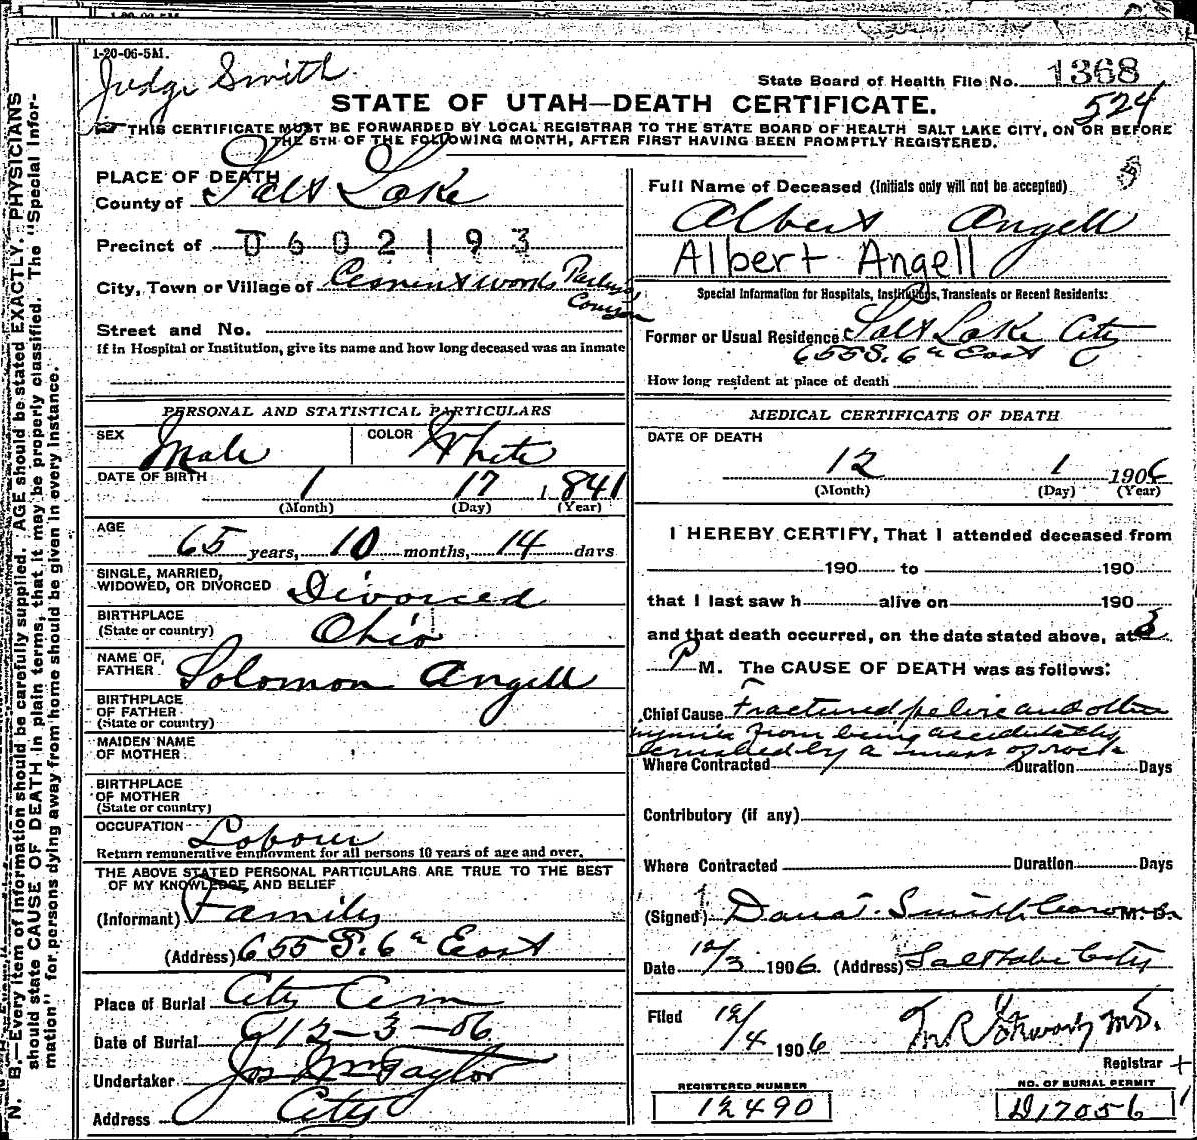 1-20-06-5M.
Judge Smith
State Board of Health File No. 1368
524
STATE OF UTAH—DEATH CERTIFICATE.
THIS CERTIFICATE MUST BE FORWARDED BY LOCAL REGISTRAR TO THE STATE BOARD OF HEALTH SALT LAKE CITY, ON OR BEFORE
THE 5TH OF THE FOLLOWING MONTH, AFTER FIRST HAVING BEEN PROMPTLY REGISTERED.
N. B.—Every item of information should be carefully supplied. AGE should be stated EXACTLY. PHYSICIANS
should state CAUSE OF DEATH in plain terms, that it may be properly classified. The "Special Infor-
mation" for persons dying away from home should be given in every instance.
PLACE OF DEATH
County of Salt Lake
Precinct of 0602193
City, Town or Village of Cement works Parleys
Street and No.
If in Hospital or Institution, give its name and how long deceased was an inmate
PERSONAL AND STATISTICAL PARTICULARS
SEX Male COLOR White
DATE OF BIRTH 1 17 1841
(Month) (Day) (Year)
AGE
65 years, 10 months, 14 days
SINGLE, MARRIED,
WIDOWED, OR DIVORCED Divorced
BIRTHPLACE
(State or country) Ohio
NAME OF
FATHER Solomon Angell
BIRTHPLACE
OF FATHER
(State or country)
MAIDEN NAME
OF MOTHER
BIRTHPLACE
OF MOTHER
(State or country)
OCCUPATION Labour
Return remunerative employment for all persons 10 years of age and over.
THE ABOVE STATED PERSONAL PARTICULARS ARE TRUE TO THE BEST
OF MY KNOWLEDGE AND BELIEF
(Informant) Family
(Address) 655 S. 6th East
Place of Burial City Cem
Date of Burial 12-3-06
Undertaker Jos Wm Taylor
Address City
Full Name of Deceased (Initials only will not be accepted)
Albert Angell
Albert Angell
Special Information for Hospitals, Institutions, Transients or Recent Residents:
Former or Usual Residence Salt Lake City
655 S. 6th East
How long resident at place of death
MEDICAL CERTIFICATE OF DEATH
DATE OF DEATH
12 1 1906
(Month) (Day) (Year)
I HEREBY CERTIFY, That I attended deceased from
190 to 190
that I last saw h alive on 190
and that death occurred, on the date stated above, at 3
P M. The CAUSE OF DEATH was as follows:
Chief Cause Fractured pelvis and other
injuries from being accidentally
crushed by a mass of rock
Where Contracted Duration Days
Contributory (if any)
Where Contracted Duration Days
(Signed) Dana T. Smith Coroner M. D.
Date 12/3 1906. (Address) Salt Lake City
Filed 12/4 1906 M.D.
Registrar
REGISTERED NUMBER
12490
NO. OF BURIAL PERMIT
D17056